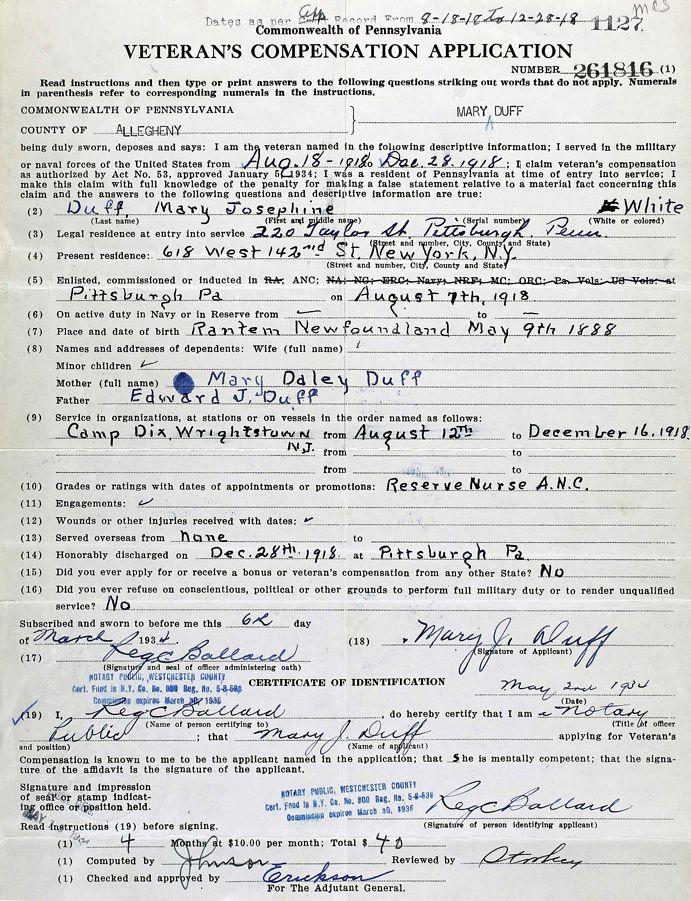 Dates as per App Record From 8-18-18 To 12-28-18 1127 mcs
Commonwealth of Pennsylvania
VETERAN'S COMPENSATION APPLICATION
NUMBER 261816 (1)
Read instructions and then type or print answers to the following questions striking out words that do not apply. Numerals
in parenthesis refer to corresponding numerals in the instructions.
COMMONWEALTH OF PENNSYLVANIA
MARY DUFF
COUNTY OF ALLEGHENY
being duly sworn, deposes and says: I am the veteran named in the following descriptive information; I served in the military
or naval forces of the United States from Aug. 18 - 1918 to Dec. 28. 1918; I claim veteran's compensation
as authorized by Act No. 53, approved January 5, 1934; I was a resident of Pennsylvania at time of entry into service; I
make this claim with full knowledge of the penalty for making a false statement relative to a material fact concerning this
claim and the answers to the following questions and descriptive information are true:
(2) Duff Mary Josephine White
(Last name) (First and middle name) (Serial number) (White or colored)
(3) Legal residence at entry into service 220 Taylor St. Pittsburgh. Penn
(Street and number, City, County and State)
(4) Present residence: 618 West 142nd St. New York, N.Y.
(Street and number, City, County and State)
(5) Enlisted, commissioned or inducted in RA; ANC; NA; NG; ERC; Navy; NRF; MC; ORC; Pa. Vols; US Vols: at
Pittsburgh Pa on August 7th, 1918
(6) On active duty in Navy or in Reserve from — to —
(7) Place and date of birth Rantem Newfoundland May 9th 1888
(8) Names and addresses of dependents: Wife (full name)
Minor children ✓
Mother (full name) Mary Daley Duff
Father Edward J. Duff
(9) Service in organizations, at stations or on vessels in the order named as follows:
Camp Dix, Wrightstown from August 12th to December 16. 1918.
N.J. from to
from to
(10) Grades or ratings with dates of appointments or promotions: Reserve Nurse A.N.C.
(11) Engagements: ✓
(12) Wounds or other injuries received with dates: ✓
(13) Served overseas from none to
(14) Honorably discharged on Dec. 28th. 1918. at Pittsburgh Pa.
(15) Did you ever apply for or receive a bonus or veteran's compensation from any other State? No
(16) Did you ever refuse on conscientious, political or other grounds to perform full military duty or to render unqualified
service? No
Subscribed and sworn to before me this day
of March 1934. (18) Mary J. Duff
(Signature of Applicant)
(17) Reg C Ballard
(Signature and seal of officer administering oath)
NOTARY PUBLIC, WESTCHESTER COUNTY
Cert. Filed in N.Y. Co. No. 800 Reg. No. 5-B-538
Commission expires March 30, 1935
CERTIFICATE OF IDENTIFICATION
May 2nd 1934
(Date)
(19) I, Reg C Ballard, do hereby certify that I am a Notary
(Name of person certifying to) (Title of officer
Public; that Mary J. Duff applying for Veteran's
and position) (Name of applicant)
Compensation is known to me to be the applicant named in the following; that She is mentally competent; that the signa-
ture of the affidavit is the signature of the applicant.
Signature and impression
of seal or stamp indicat-
ing office or position held.
NOTARY PUBLIC, WESTCHESTER COUNTY
Cert. Filed in N.Y. Co. No. 800 Reg. No. 5-B-538
Commission expires March 30, 1935
Reg C Ballard
Read instructions (19) before signing. (Signature of person identifying applicant)
(1) 4 Months at $10.00 per month; Total $ 40
(1) Computed by Johnson Reviewed by
(1) Checked and approved by Erickson
For The Adjutant General.